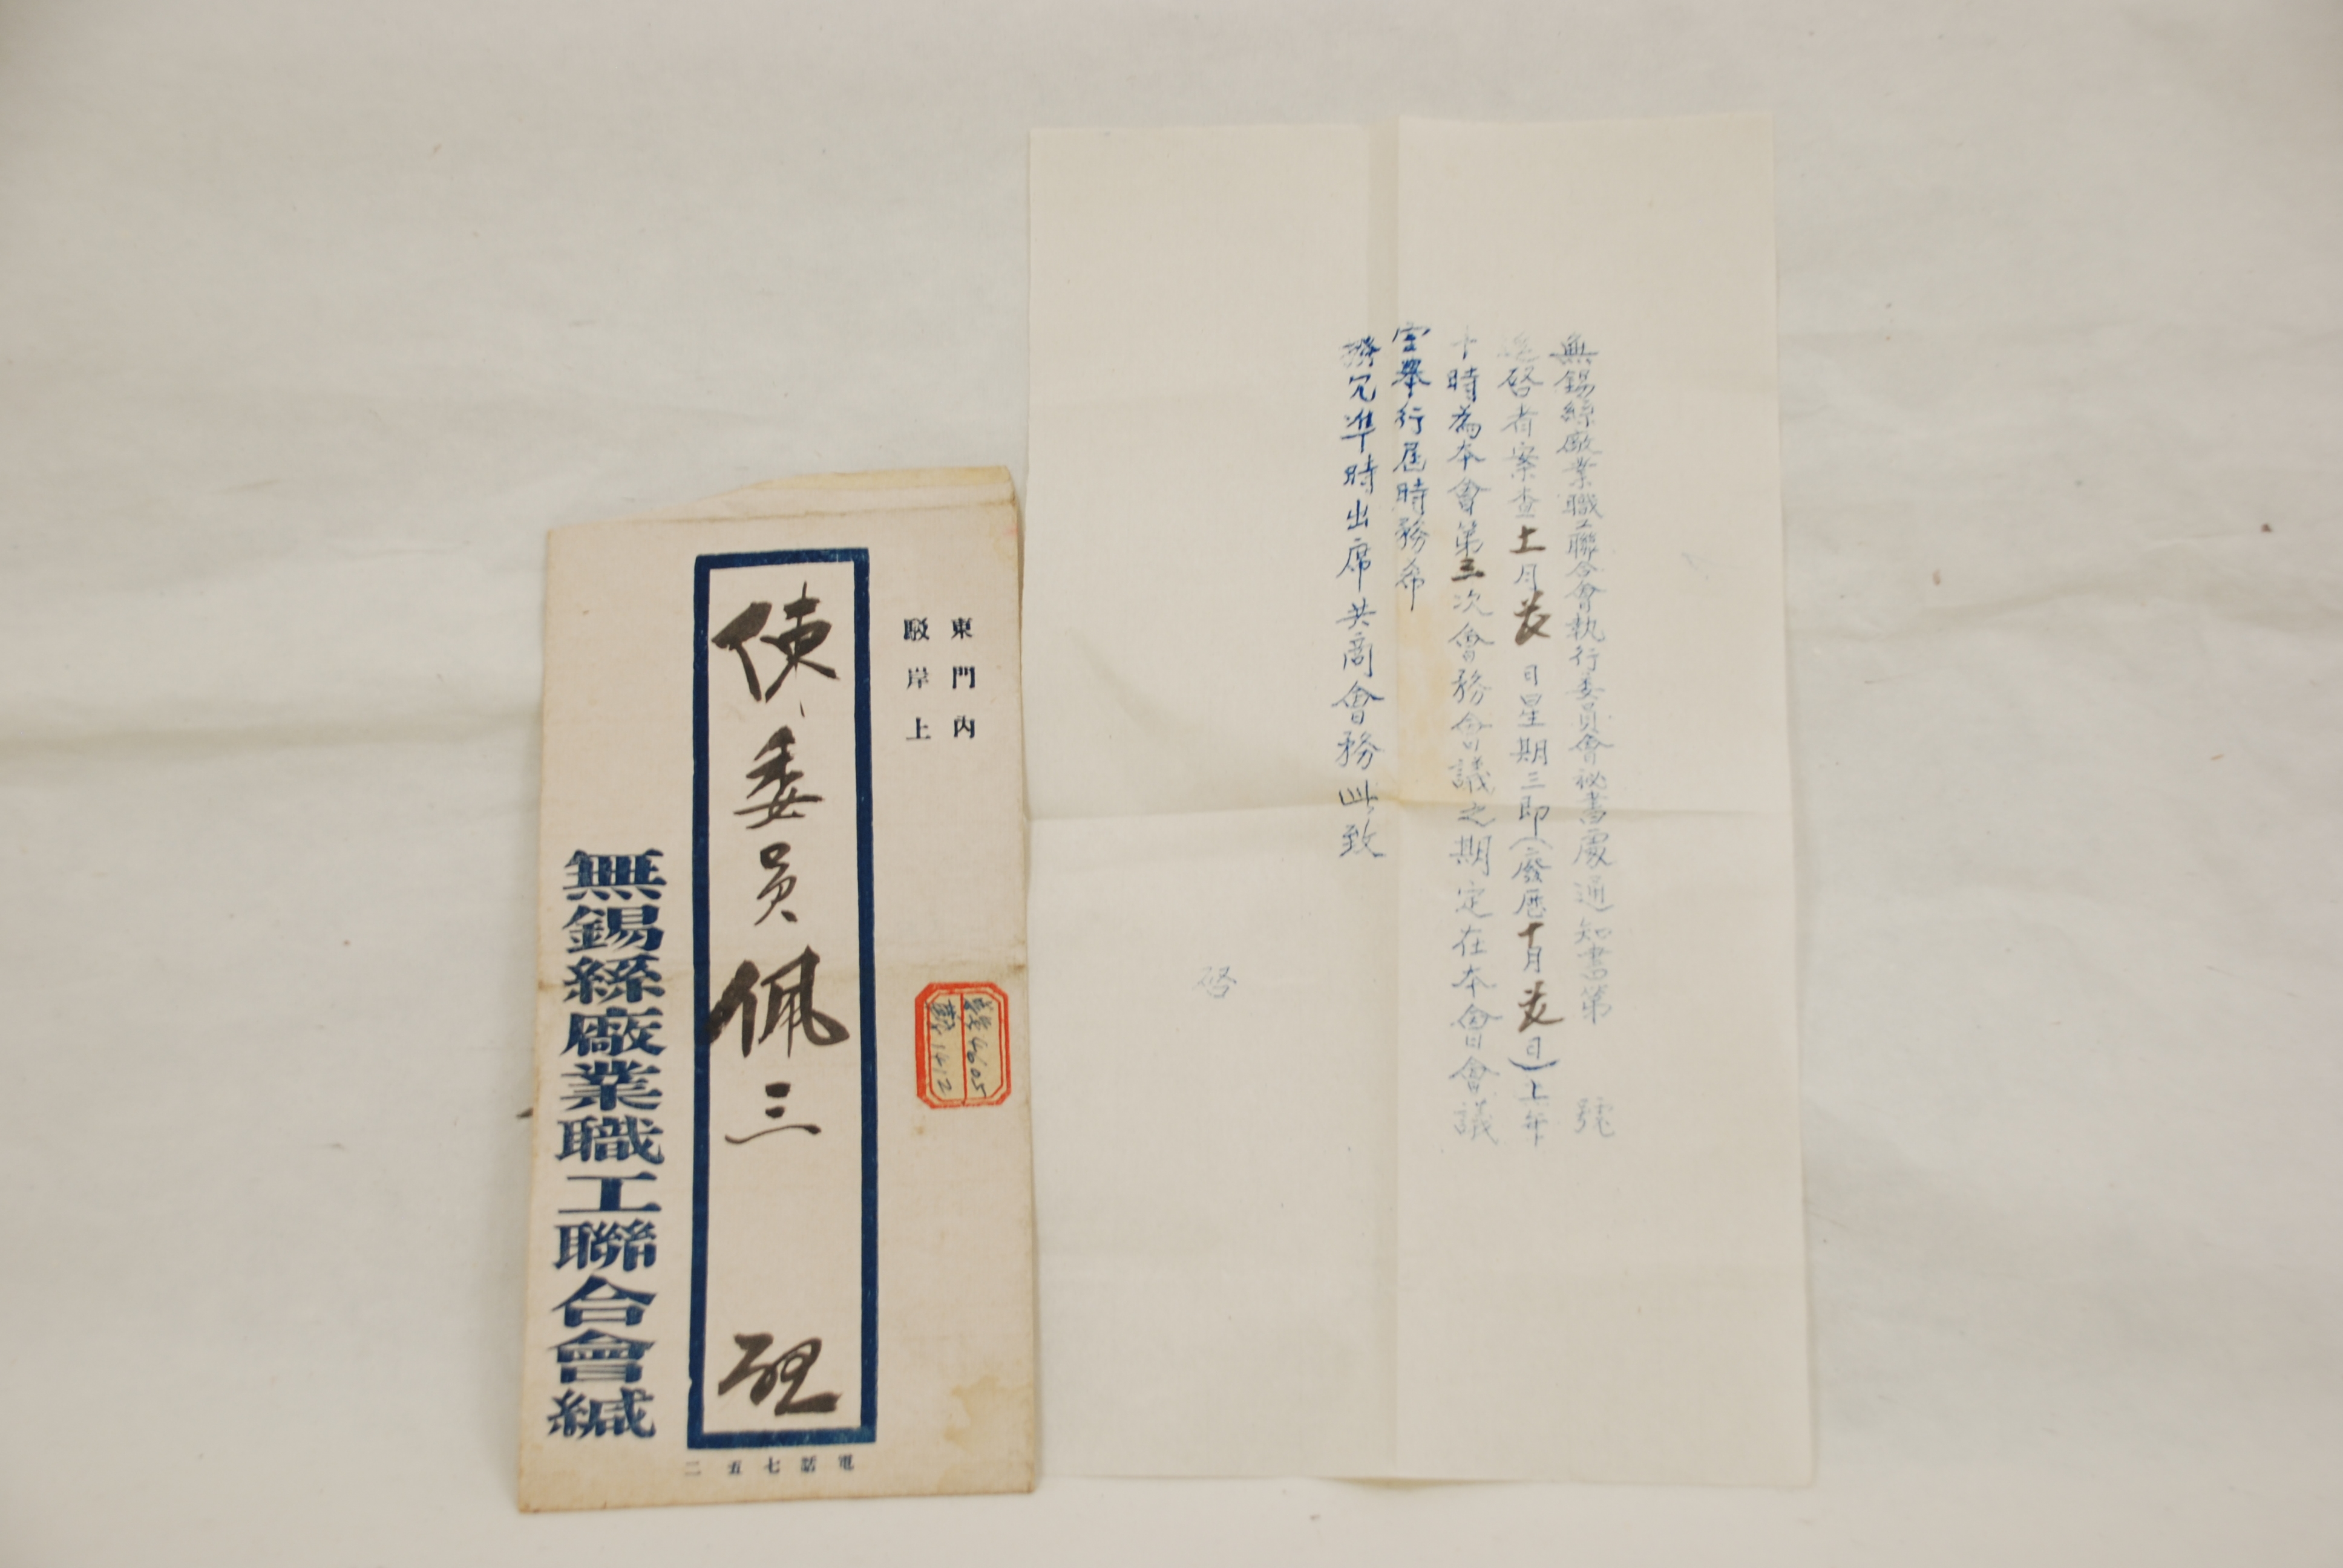 東門內
駁岸上
4605
1412
陳委員佩三 啟
無錫絲廠業職工聯合會緘
電話七五二
無錫絲廠業職工聯合會執行委員會秘書處通知書第 號
逕啓者案查十一月 日星期三即(廢歷十月 日)上午
十時為本會第三次會務會議之期定在本會會議
室舉行屆時務希
撥冗準時出席共商會務此致
啓